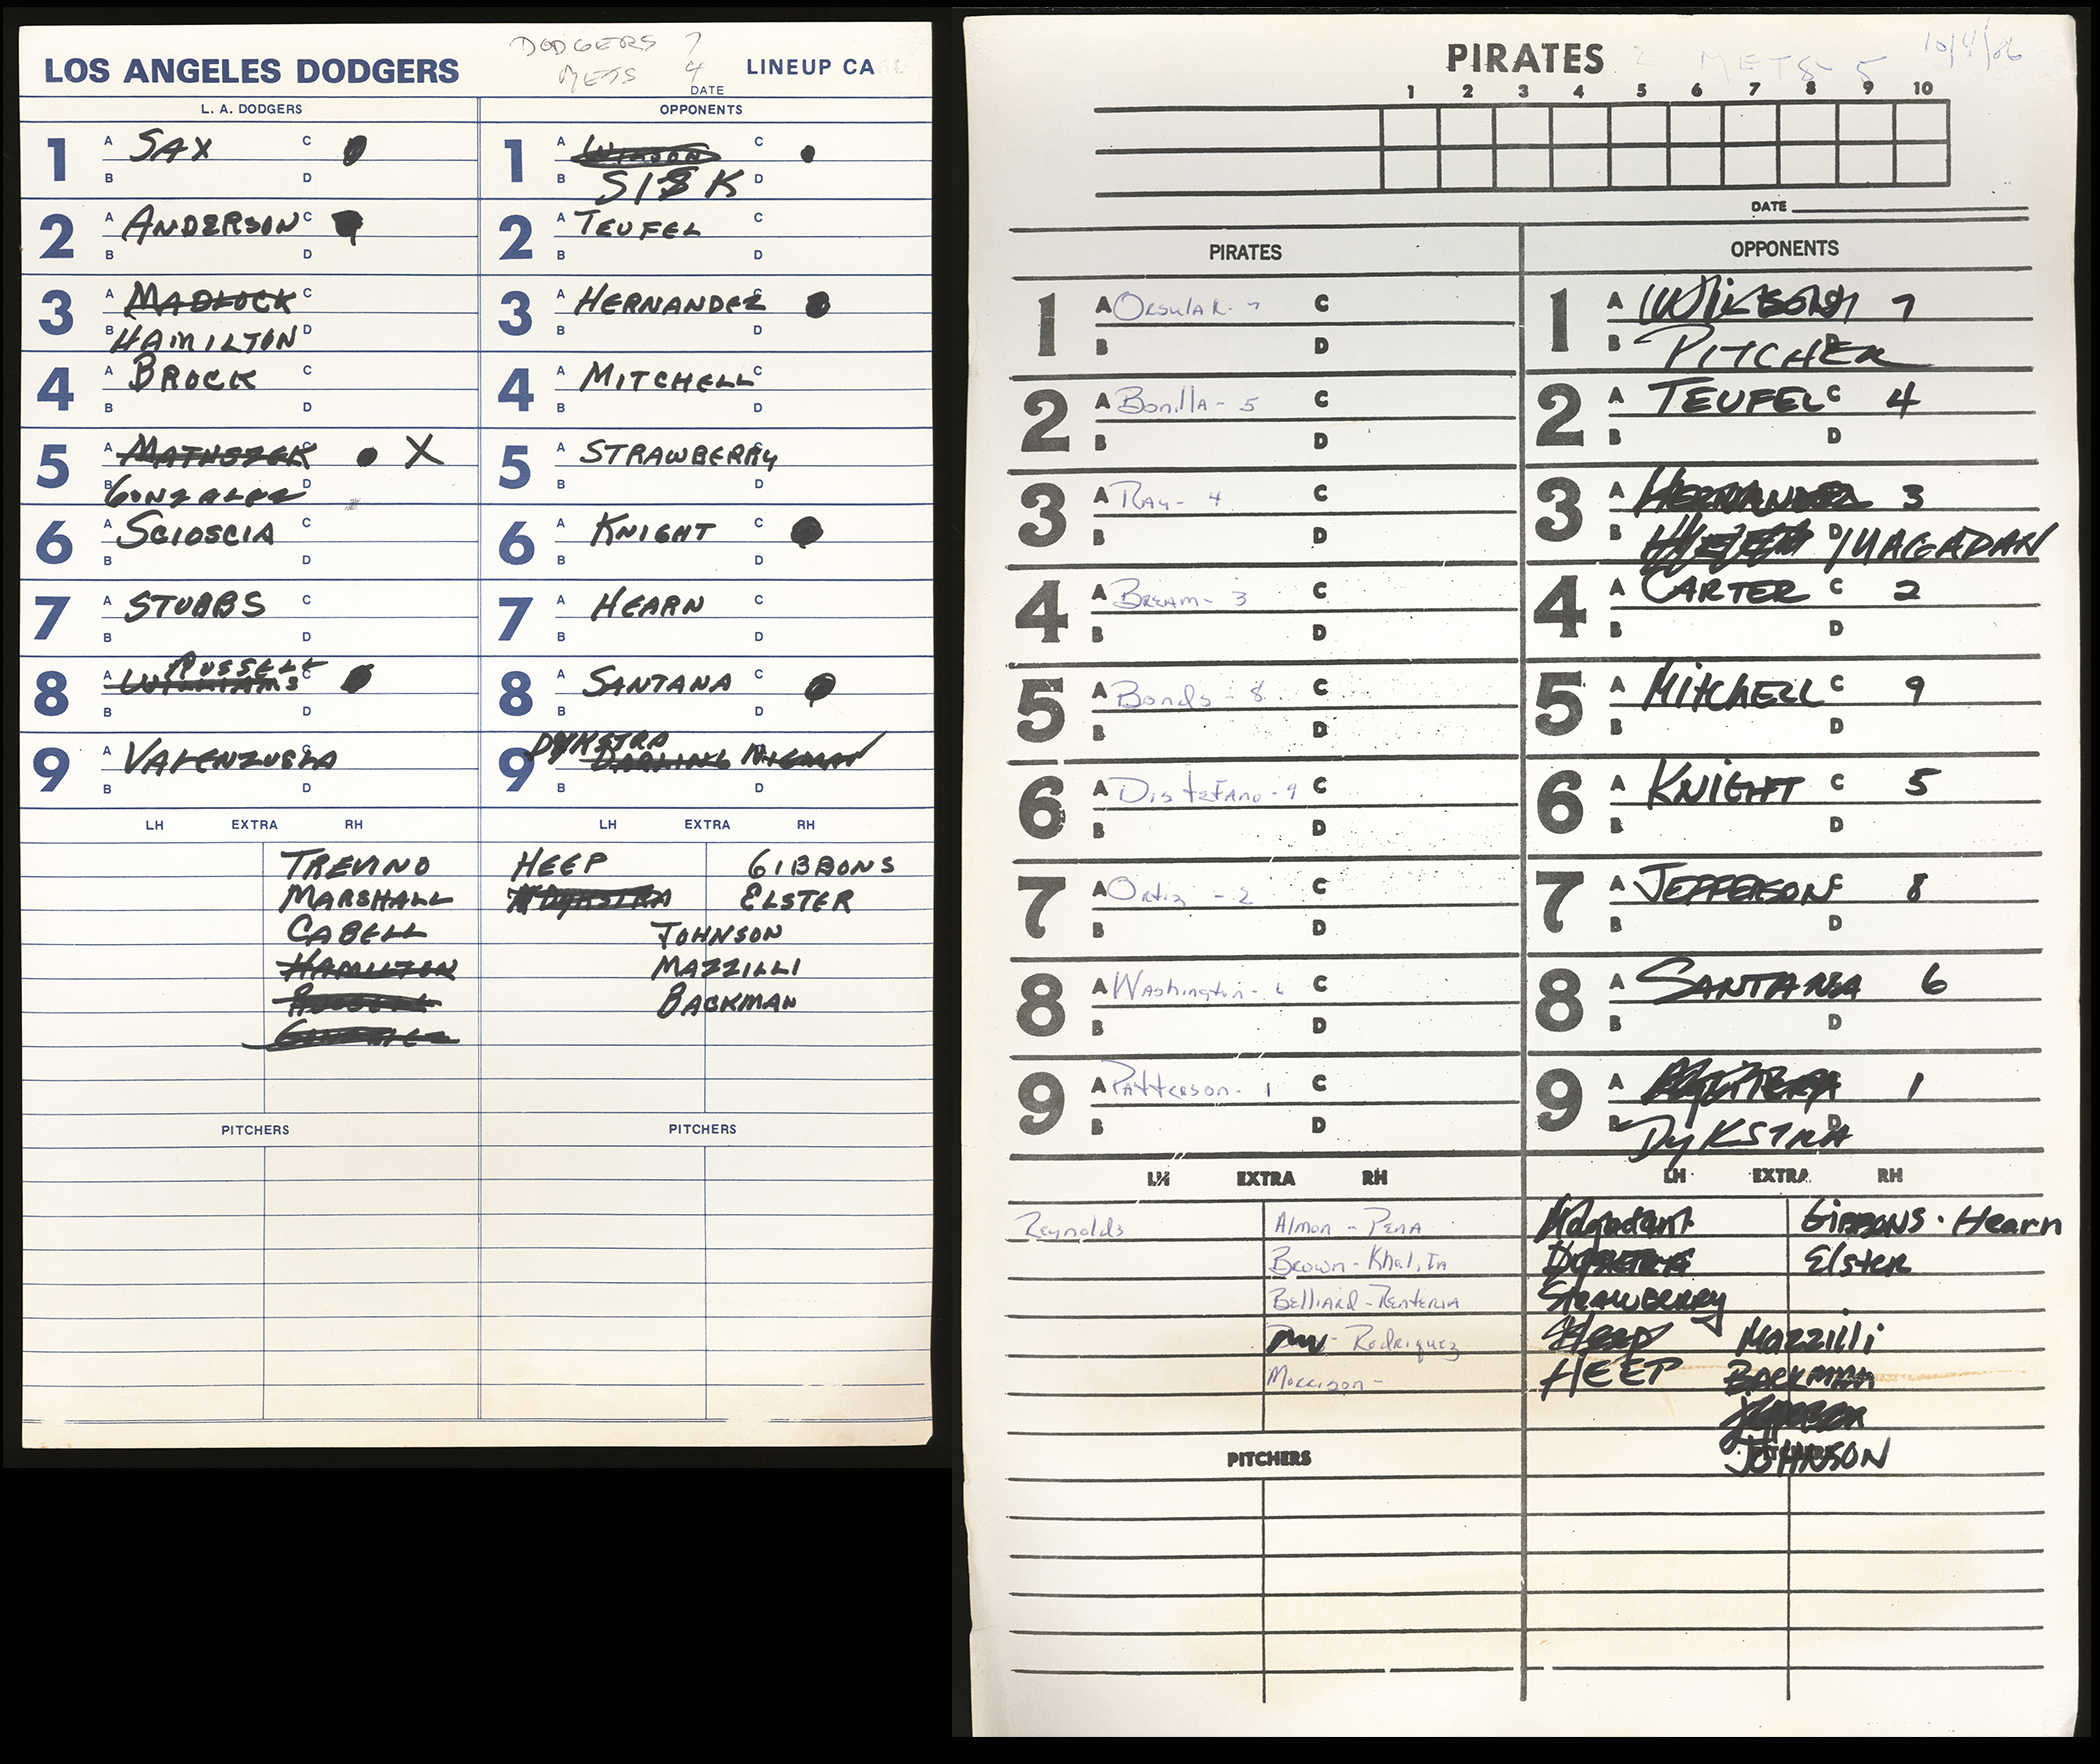 DODGERS 7
METS 4
LOS ANGELES DODGERS LINEUP CA
DATE
L. A. DODGERS OPPONENTS
1 A SAX C
B D
2 A ANDERSON C
B D
3 A MADLOCK C
B HAMILTON D
4 A BROCK C
B D
5 A MATUSZEK C X
B GONZALEZ D
6 A SCIOSCIA C
B D
7 A STUBBS C
B D
8 RUSSELL
A WILLIAMS C
B D
9 A VALENZUELA C
B D
1 A WILSON C
B SISK D
2 A TEUFEL C
B D
3 A HERNANDEZ C
B D
4 A MITCHELL C
B D
5 A STRAWBERRY C
B D
6 A KNIGHT C
B D
7 A HEARN C
B D
8 A SANTANA C
B D
9 DYKSTRA
DARLING NIEMANN
B D
LH EXTRA RH LH EXTRA RH
TREVINO
MARSHALL
CABELL
HAMILTON
RUSSELL
GONZALEZ
HEEP GIBBONS
DYKSTRA ELSTER
JOHNSON
MAZZILLI
BACKMAN
PITCHERS PITCHERS
PIRATES METS 8- 5 10/4/86
1 2 3 4 5 6 7 8 9 10
DATE
PIRATES OPPONENTS
1 A Orsulak- 7 C
B D
2 A Bonilla- 5 C
B D
3 A Ray- 4 C
B D
4 A Bream- 3 C
B D
5 A Bonds- 8 C
B D
6 A Distefano- 9 C
B D
7 A Ortiz - 2 C
B D
8 A Washington- 6 C
B D
9 A Patterson- 1 C
B D
1 A WILSON 7
B PITCHER D
2 A TEUFEL C 4
B D
3 A HERNANDEZ 3
B HEEP D MAGADAN
4 A CARTER C 2
B D
5 A MITCHELL C 9
B D
6 A KNIGHT C 5
B D
7 A JEFFERSON C 8
B D
8 A SANTANA 6
B D
9 A AGUILERA 1
B DYKSTRA D
LH EXTRA RH LH EXTRA RH
Reynolds Almon - Pena
Brown - Khalifa
Belliard - Renteria
- Rodriquez
Morrison -
Magadan GIBBONS · Hearn
DYKSTRA Elster
STRAWBERRY
HEEP MAZZILLI
HEEP BACKMAN
JOHNSON
PITCHERS PITCHERS